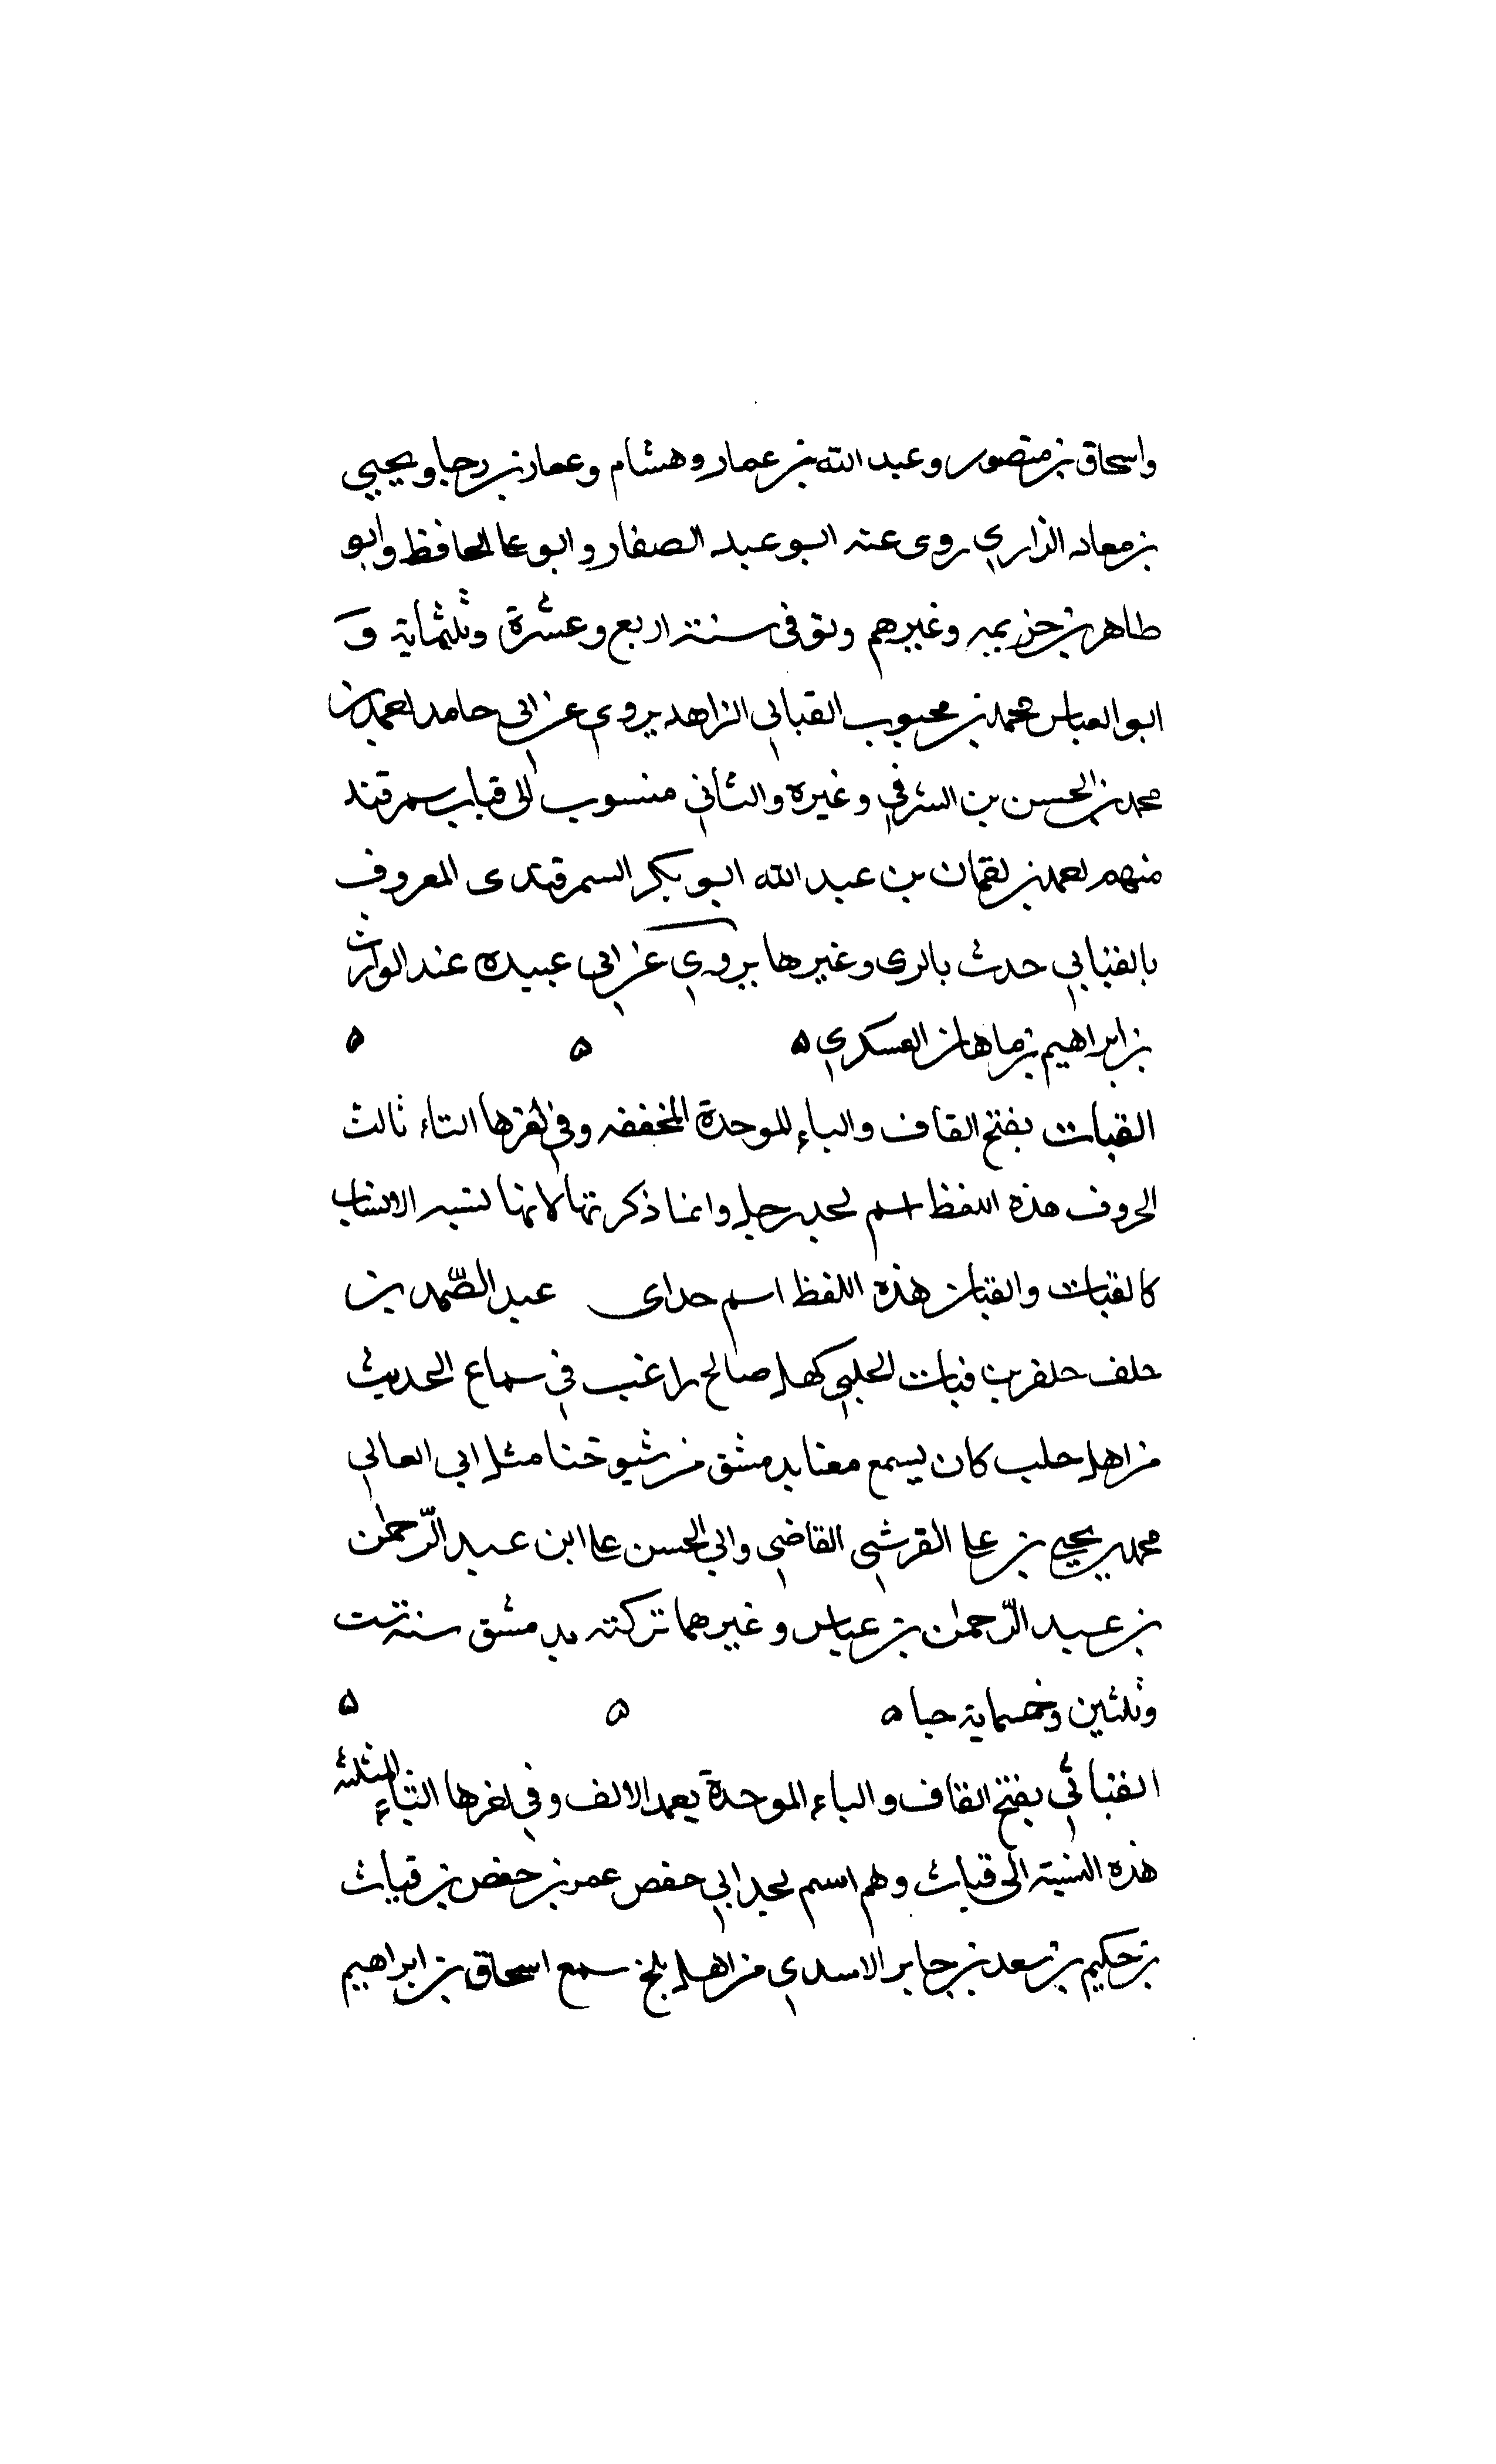 واسحاق بن منصور وعبد الله بن عمار وهشام وعمار بن رجا ويحيى
بن معاد الرازي روى عنه ابو عبد الصفار وابو علي الحافظ وابو
طاهر بن خزيمه وغيرهم وتوفى سنة اربع وعشرة وثلثماية و
ابو العباس محمد بن محبوب القبابي الزاهد يروي عن ابي حامد احمد بن
محمد بن الحسن بن الشرفي وغيره والثاني منسوب الى قباب سمرقند
منهم احمد بن لقمان بن عبد الله ابو بكر السمرقندى المعروف
بالقبابي حدث بالرى وغيرها يروي عن ابي عبيده عند الوارث
بن ابراهيم بن ماهان العسكري ه ه ه
القبات بفتح القاف والباء الموحدة المخففه وفي اخرها التاء ثالث
الحروف هذه اللفظ اسم لجد رجل وانما ذكرتها لانها تشبه الانساب
كالقبات والقبان هذه اللفظ اسم حداى عبد الصمد بن
خلف بن قبات الحلبي كهل صالح راغب في سماع الحديث
من اهل حلب كان يسمع معنا بدمشق من شيوخنا مثل ابي العالي
محمد بن يحيى بن علي القرشي القاضي وابي الحسن علي ابن عبد الرحمن
بن عبد الرحمن بن عباس وغيرهما تركته بدمشق سنة ست
وثلثين وخمسماية حيا ه ه ه
القبائي بفتح القاف والباء الموحدة بعد الالف وفي اخرها الثاء المثلثه
هذه النسبة الى قباث وهم اسم لجد ابي حفص عمر بن حفص بن قباث
بن حكيم بن سعد بن جابر الاسدي من اهل بلخ سمع اسحاق بن ابراهيم